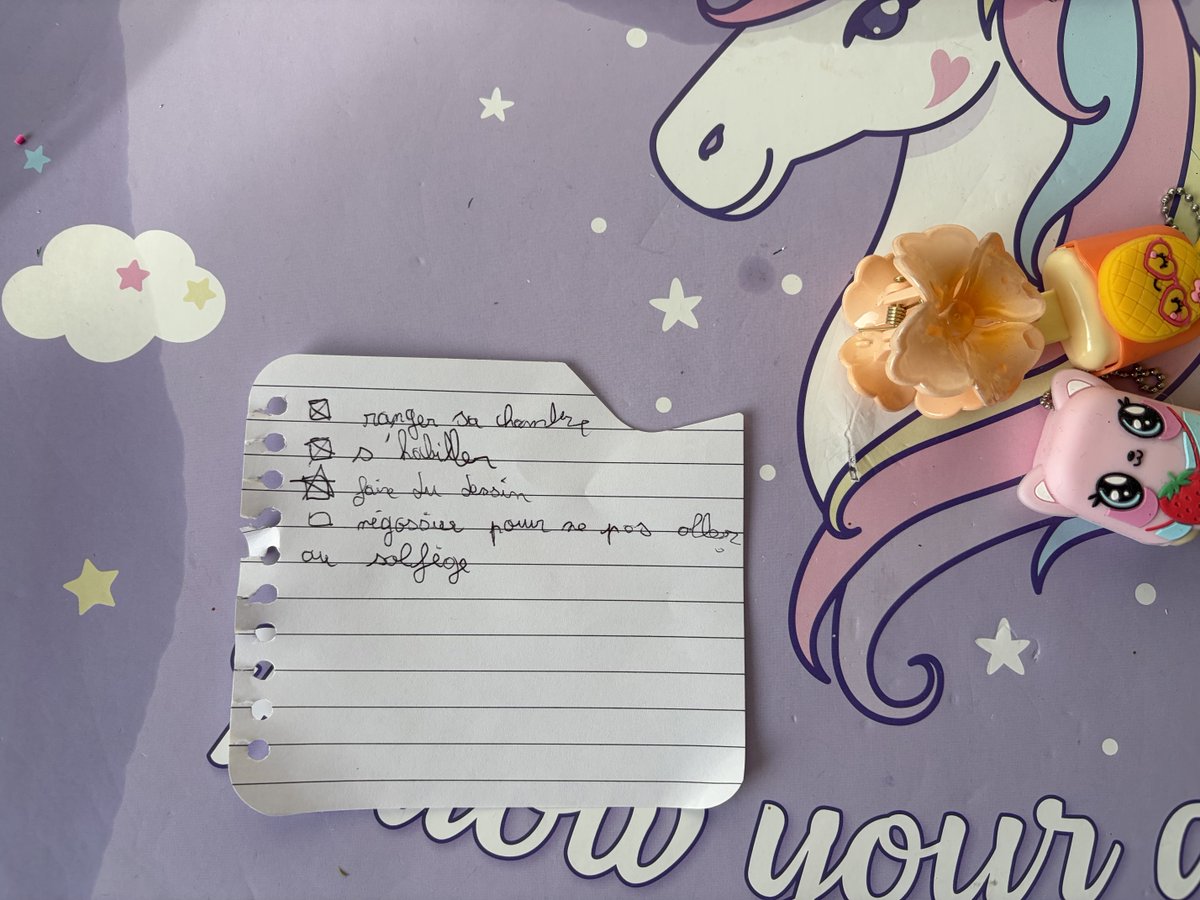 ☒ ranger sa chambre
☒ s'habiller
☒ faire du dessin
☐ négossier pour ne pas aller
au solfège
your